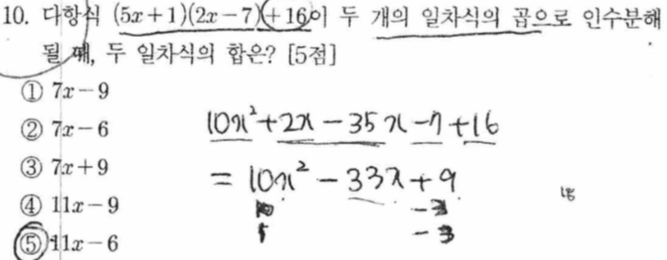 10. 다항식 (5x+1)(2x-7)+16이 두 개의 일차식의 곱으로 인수분해
될 때, 두 일차식의 합은? [5점]
① 7x-9
② 7x-6
③ 7x+9
④ 11x-9
⑤ 11x-6
10x²+2x-35x-7+16
=10x²-33x+9
10 -3
1 -3